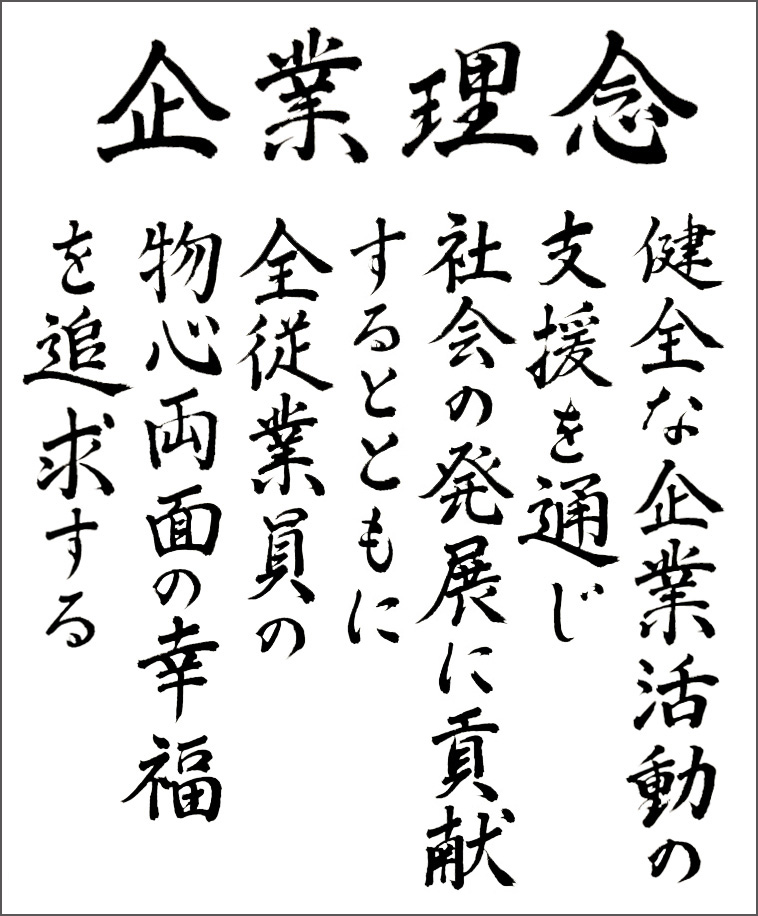 企業理念
健全な企業活動の
支援を通じ
社会の発展に貢献
するとともに
全従業員の
物心両面の幸福
を追求する